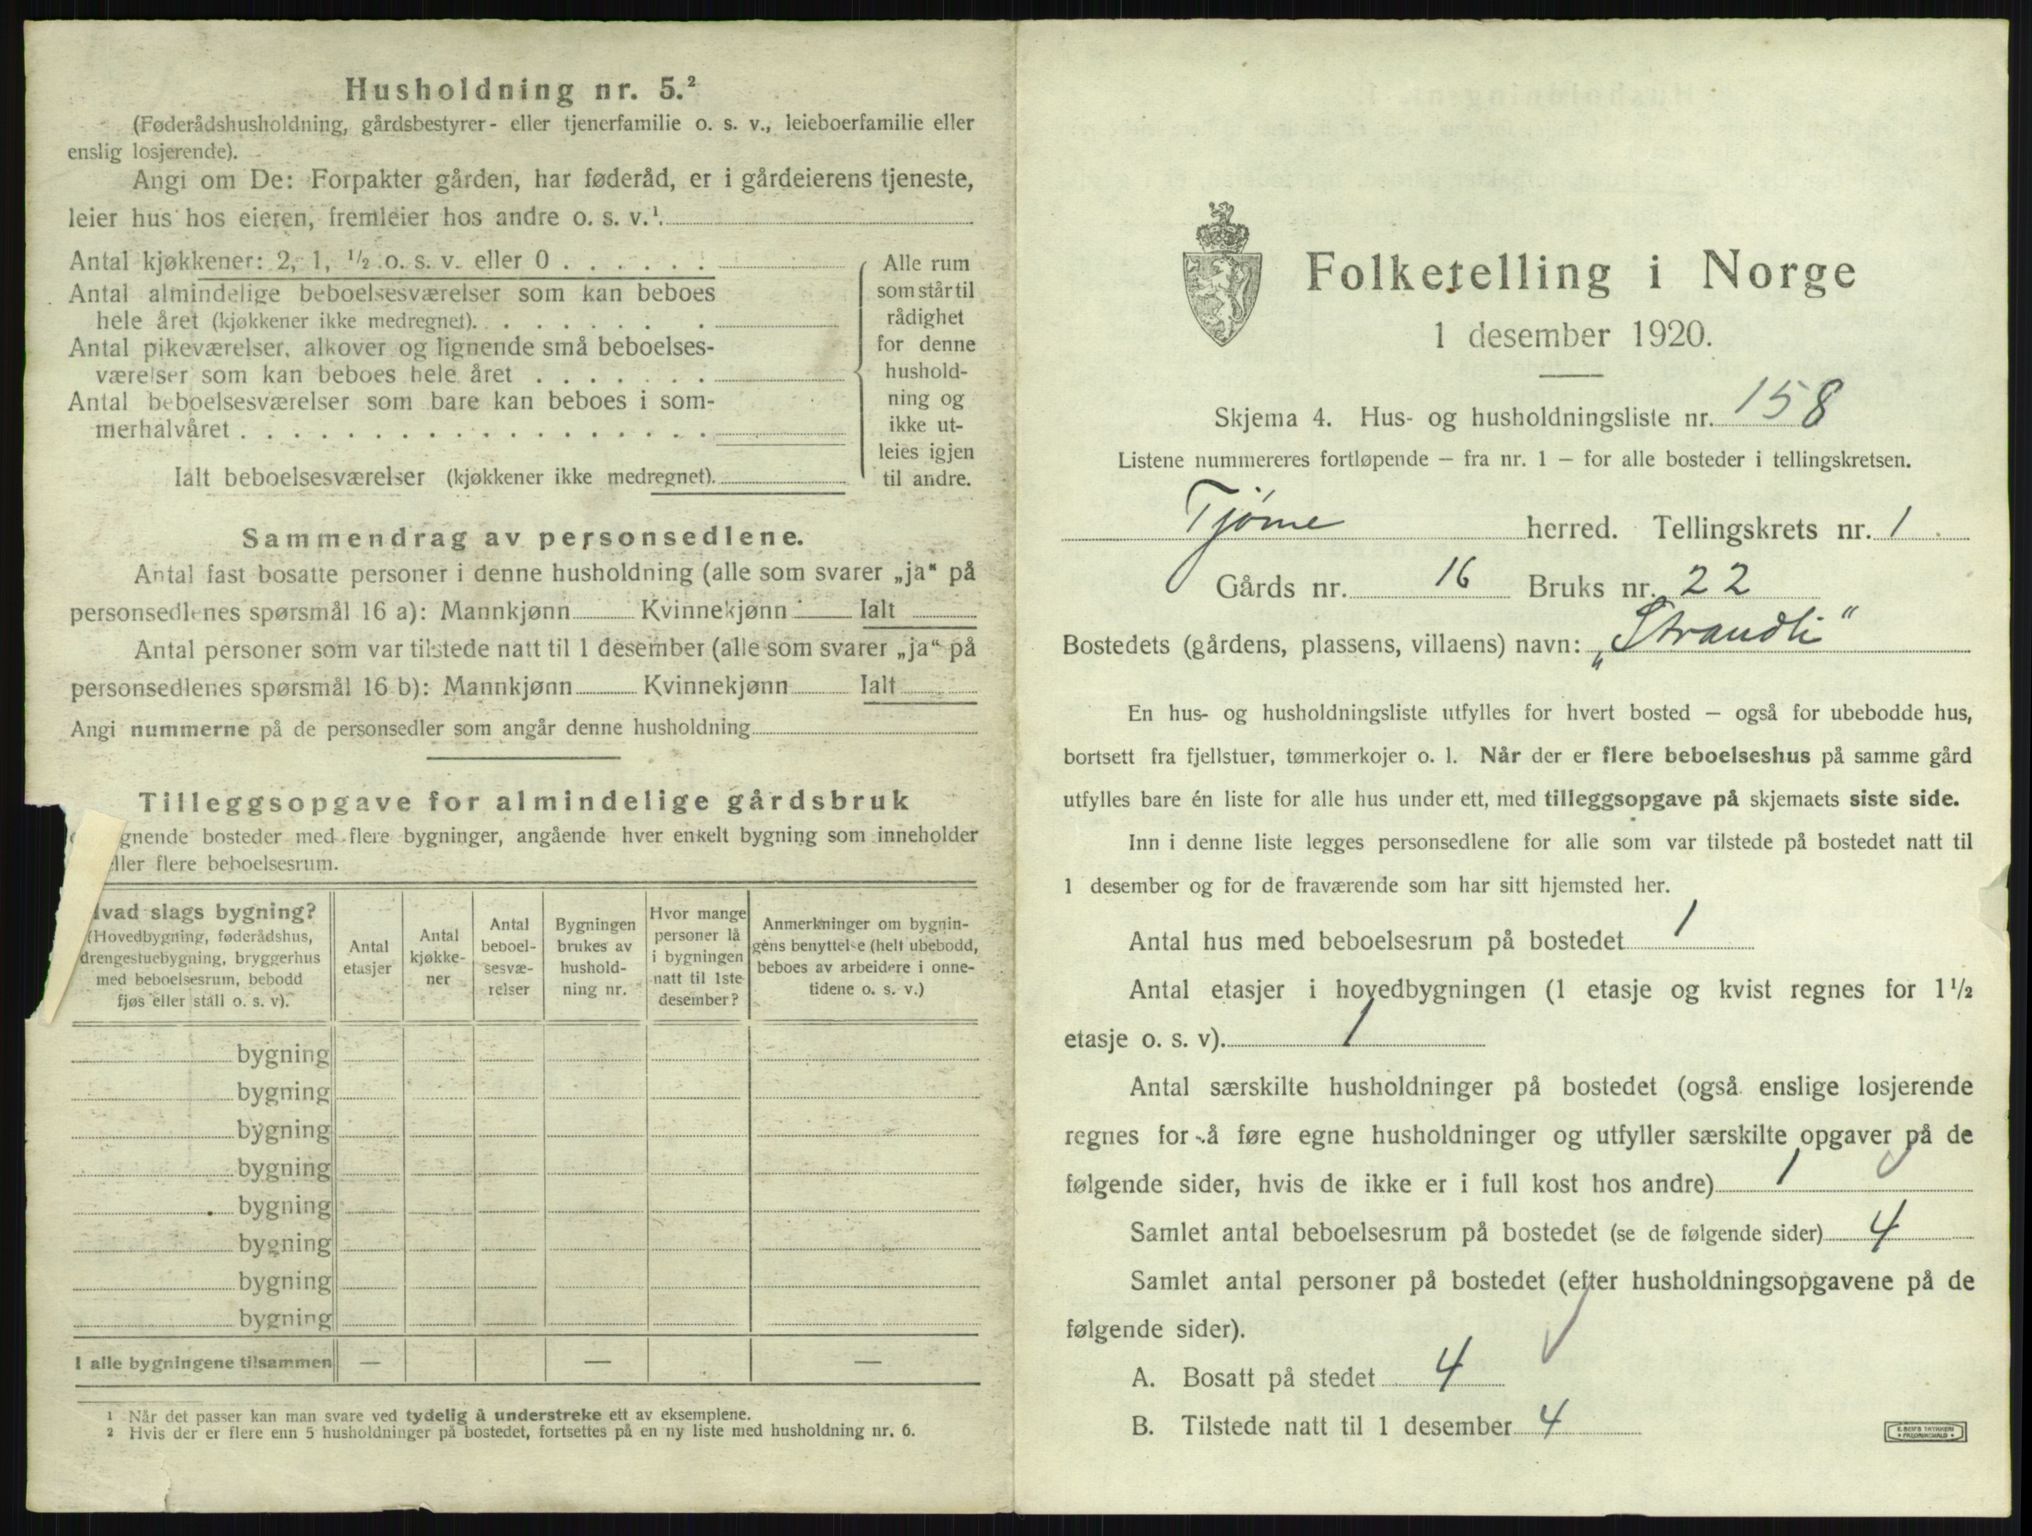 Husholdning nr. 5.²
(Føderådshusholdning, gårdsbestyrer- eller tjenerfamilie o. s. v., leieboerfamilie eller
enslig losjerende).
Angi om De: Forpakter gården, har føderåd, er i gårdeierens tjeneste,
leier hus hos eieren, fremleier hos andre o. s. v.¹
Antal kjøkkener: 2, 1, ½ o. s. v. eller 0
Antal almindelige beboelsesværelser som kan beboes
hele året (kjøkkener ikke medregnet).
Antal pikeværelser, alkover og lignende små beboelses-
værelser som kan beboes hele året
Antal beboelsesværelser som bare kan beboes i som-
merhalvåret
Ialt beboelsesværelser (kjøkkener ikke medregnet).
Alle rum
som står til
rådighet
for denne
hushold-
ning og
ikke ut-
leies igjen
til andre.
Sammendrag av personsedlene.
Antal fast bosatte personer i denne husholdning (alle som svarer „ja" på
personsedlenes spørsmål 16 a): Mannkjønn Kvinnekjønn Ialt
Antal personer som var tilstede natt til 1 desember (alle som svarer „ja" på
personsedlenes spørsmål 16 b): Mannkjønn Kvinnekjønn Ialt
Angi nummerne på de personsedler som angår denne husholdning
Tilleggsopgave for almindelige gårdsbruk
gnende bosteder med flere bygninger, angående hver enkelt bygning som inneholder
ller flere beboelsesrum.
Hvad slags bygning?
(Hovedbygning, føderådshus,
drengestuebygning, bryggerhus
med beboelsesrum, bebodd
fjøs eller stall o. s. v).
Antal
etasjer
Antal
kjøkke-
ner
Antal
beboel-
sesvæ-
relser
Bygningen
brukes av
hushold-
ning nr.
Hvor mange
personer lå
i bygningen
natt til 1ste
desember?
Anmerkninger om bygnin-
gens benyttelse (helt ubebodd,
beboes av arbeidere i onne-
tidene o. s. v.)
bygning
bygning
bygning
bygning
bygning
bygning
bygning
bygning
I alle bygningene tilsammen — — —
1 Når det passer kan man svare ved tydelig å understreke ett av eksemplene.
2 Hvis der er flere enn 5 husholdninger på bostedet, fortsettes på en ny liste med husholdning nr. 6.
Folketelling i Norge
1 desember 1920.
Skjema 4. Hus- og husholdningsliste nr. 158
Listene nummereres fortløpende – fra nr. 1 – for alle bosteder i tellingskretsen.
Tjøme herred. Tellingskrets nr. 1
Gårds nr. 16 Bruks nr. 22
Bostedets (gårdens, plassens, villaens) navn: „Strandli"
En hus- og husholdningsliste utfylles for hvert bosted – også for ubebodde hus,
bortsett fra fjellstuer, tømmerkojer o. l. Når der er flere beboelseshus på samme gård
utfylles bare én liste for alle hus under ett, med tilleggsopgave på skjemaets siste side.
Inn i denne liste legges personsedlene for alle som var tilstede på bostedet natt til
1 desember og for de fraværende som har sitt hjemsted her.
Antal hus med beboelsesrum på bostedet 1
Antal etasjer i hovedbygningen (1 etasje og kvist regnes for 1½
etasje o. s. v). 1
Antal særskilte husholdninger på bostedet (også enslige losjerende
regnes for å føre egne husholdninger og utfyller særskilte opgaver på de
følgende sider, hvis de ikke er i full kost hos andre) 1
Samlet antal beboelsesrum på bostedet (se de følgende sider) 4
Samlet antal personer på bostedet (efter husholdningsopgavene på de
følgende sider).
A. Bosatt på stedet 4
B. Tilstede natt til 1 desember 4